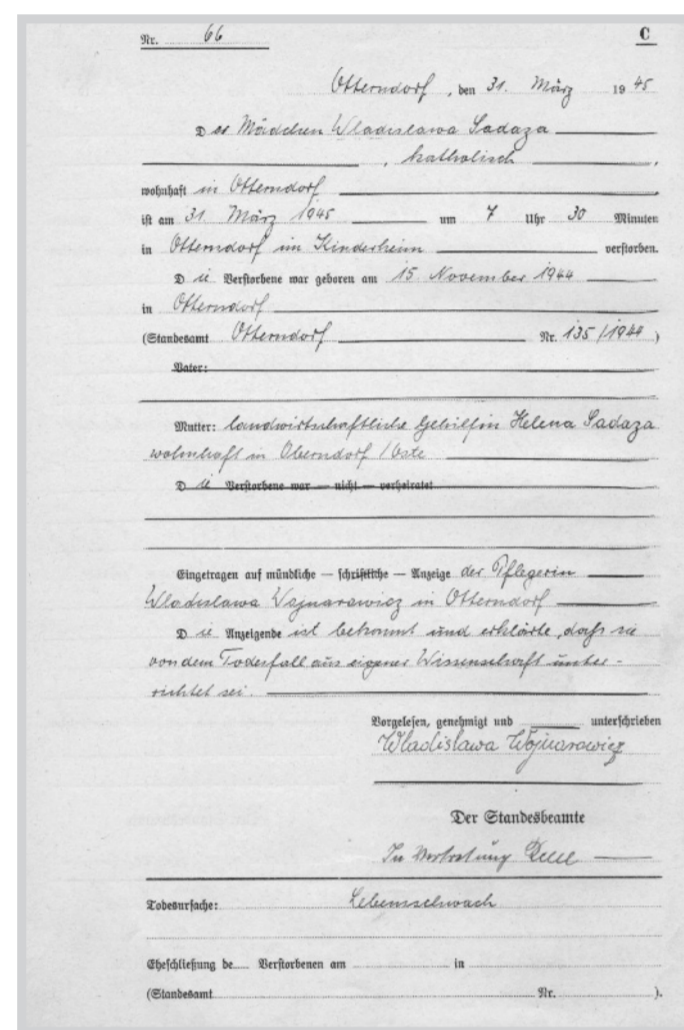 Nr. 66 C
Otterndorf, den 31. März 1945
Das Mädchen Wladislawa Sadaza
, katholisch ,
wohnhaft in Otterndorf
ist am 31. März 1945 um 7 Uhr 30 Minuten
in Otterndorf im Kinderheim verstorben.
Die Verstorbene war geboren am 15 November 1944
in Otterndorf
(Standesamt Otterndorf Nr. 135/1944)
Vater:
Mutter: landwirtschaftliche Gehilfin Helena Sadaza
wohnhaft in Oberndorf / Oste
Die Verstorbene war — nicht — verheiratet
Eingetragen auf mündliche — schriftliche — Anzeige der Pflegerin
Wladislawa Wojnarawicz in Otterndorf
Die Anzeigende ist bekannt und erklärte, dass sie
von dem Todesfall aus eigener Wissenschaft unter-
richtet sei.
Vorgelesen, genehmigt und unterschrieben
Wladislawa Wojnarawicz
Der Standesbeamte
In Vertretung
Todesursache: Lebensschwach
Eheschließung de Verstorbenen am in
(Standesamt Nr. ).